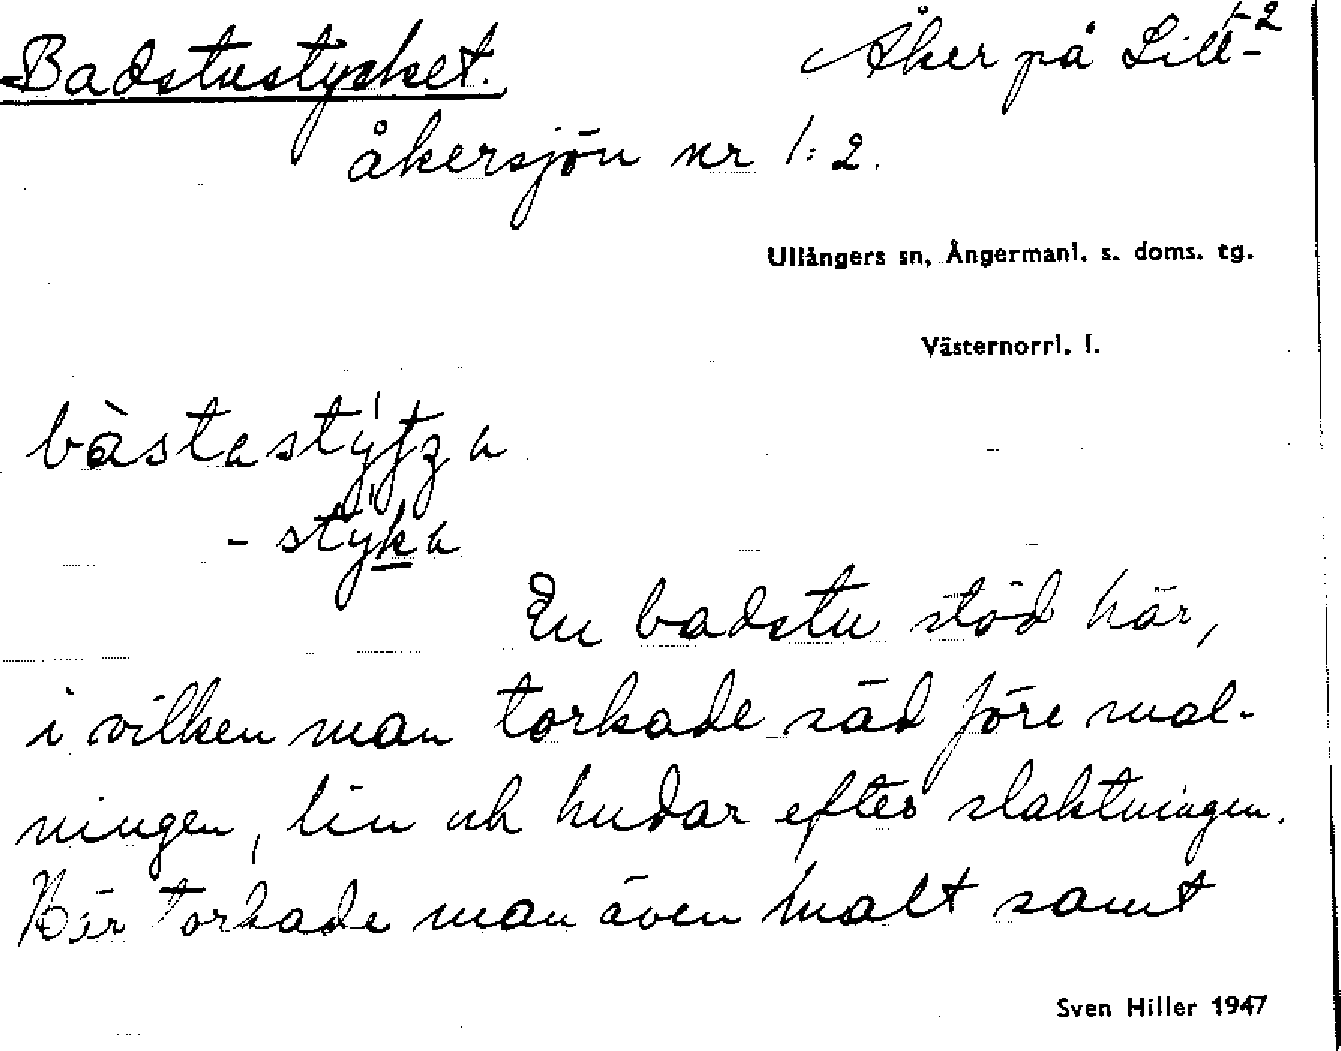 1-2
Badstustycket. Åker på Lill-
åkersjön nr 1:2.
Ullångers sn, Ångermanl. s. doms. tg.
Västernorrl. l.
bàstastýtza
- stýka
En badstu stod här,
i vilken man torkade säd före mal-
ningen, lin och hudar efter slaktningen.
Här torkade man även malt samt
Sven Hiller 1947